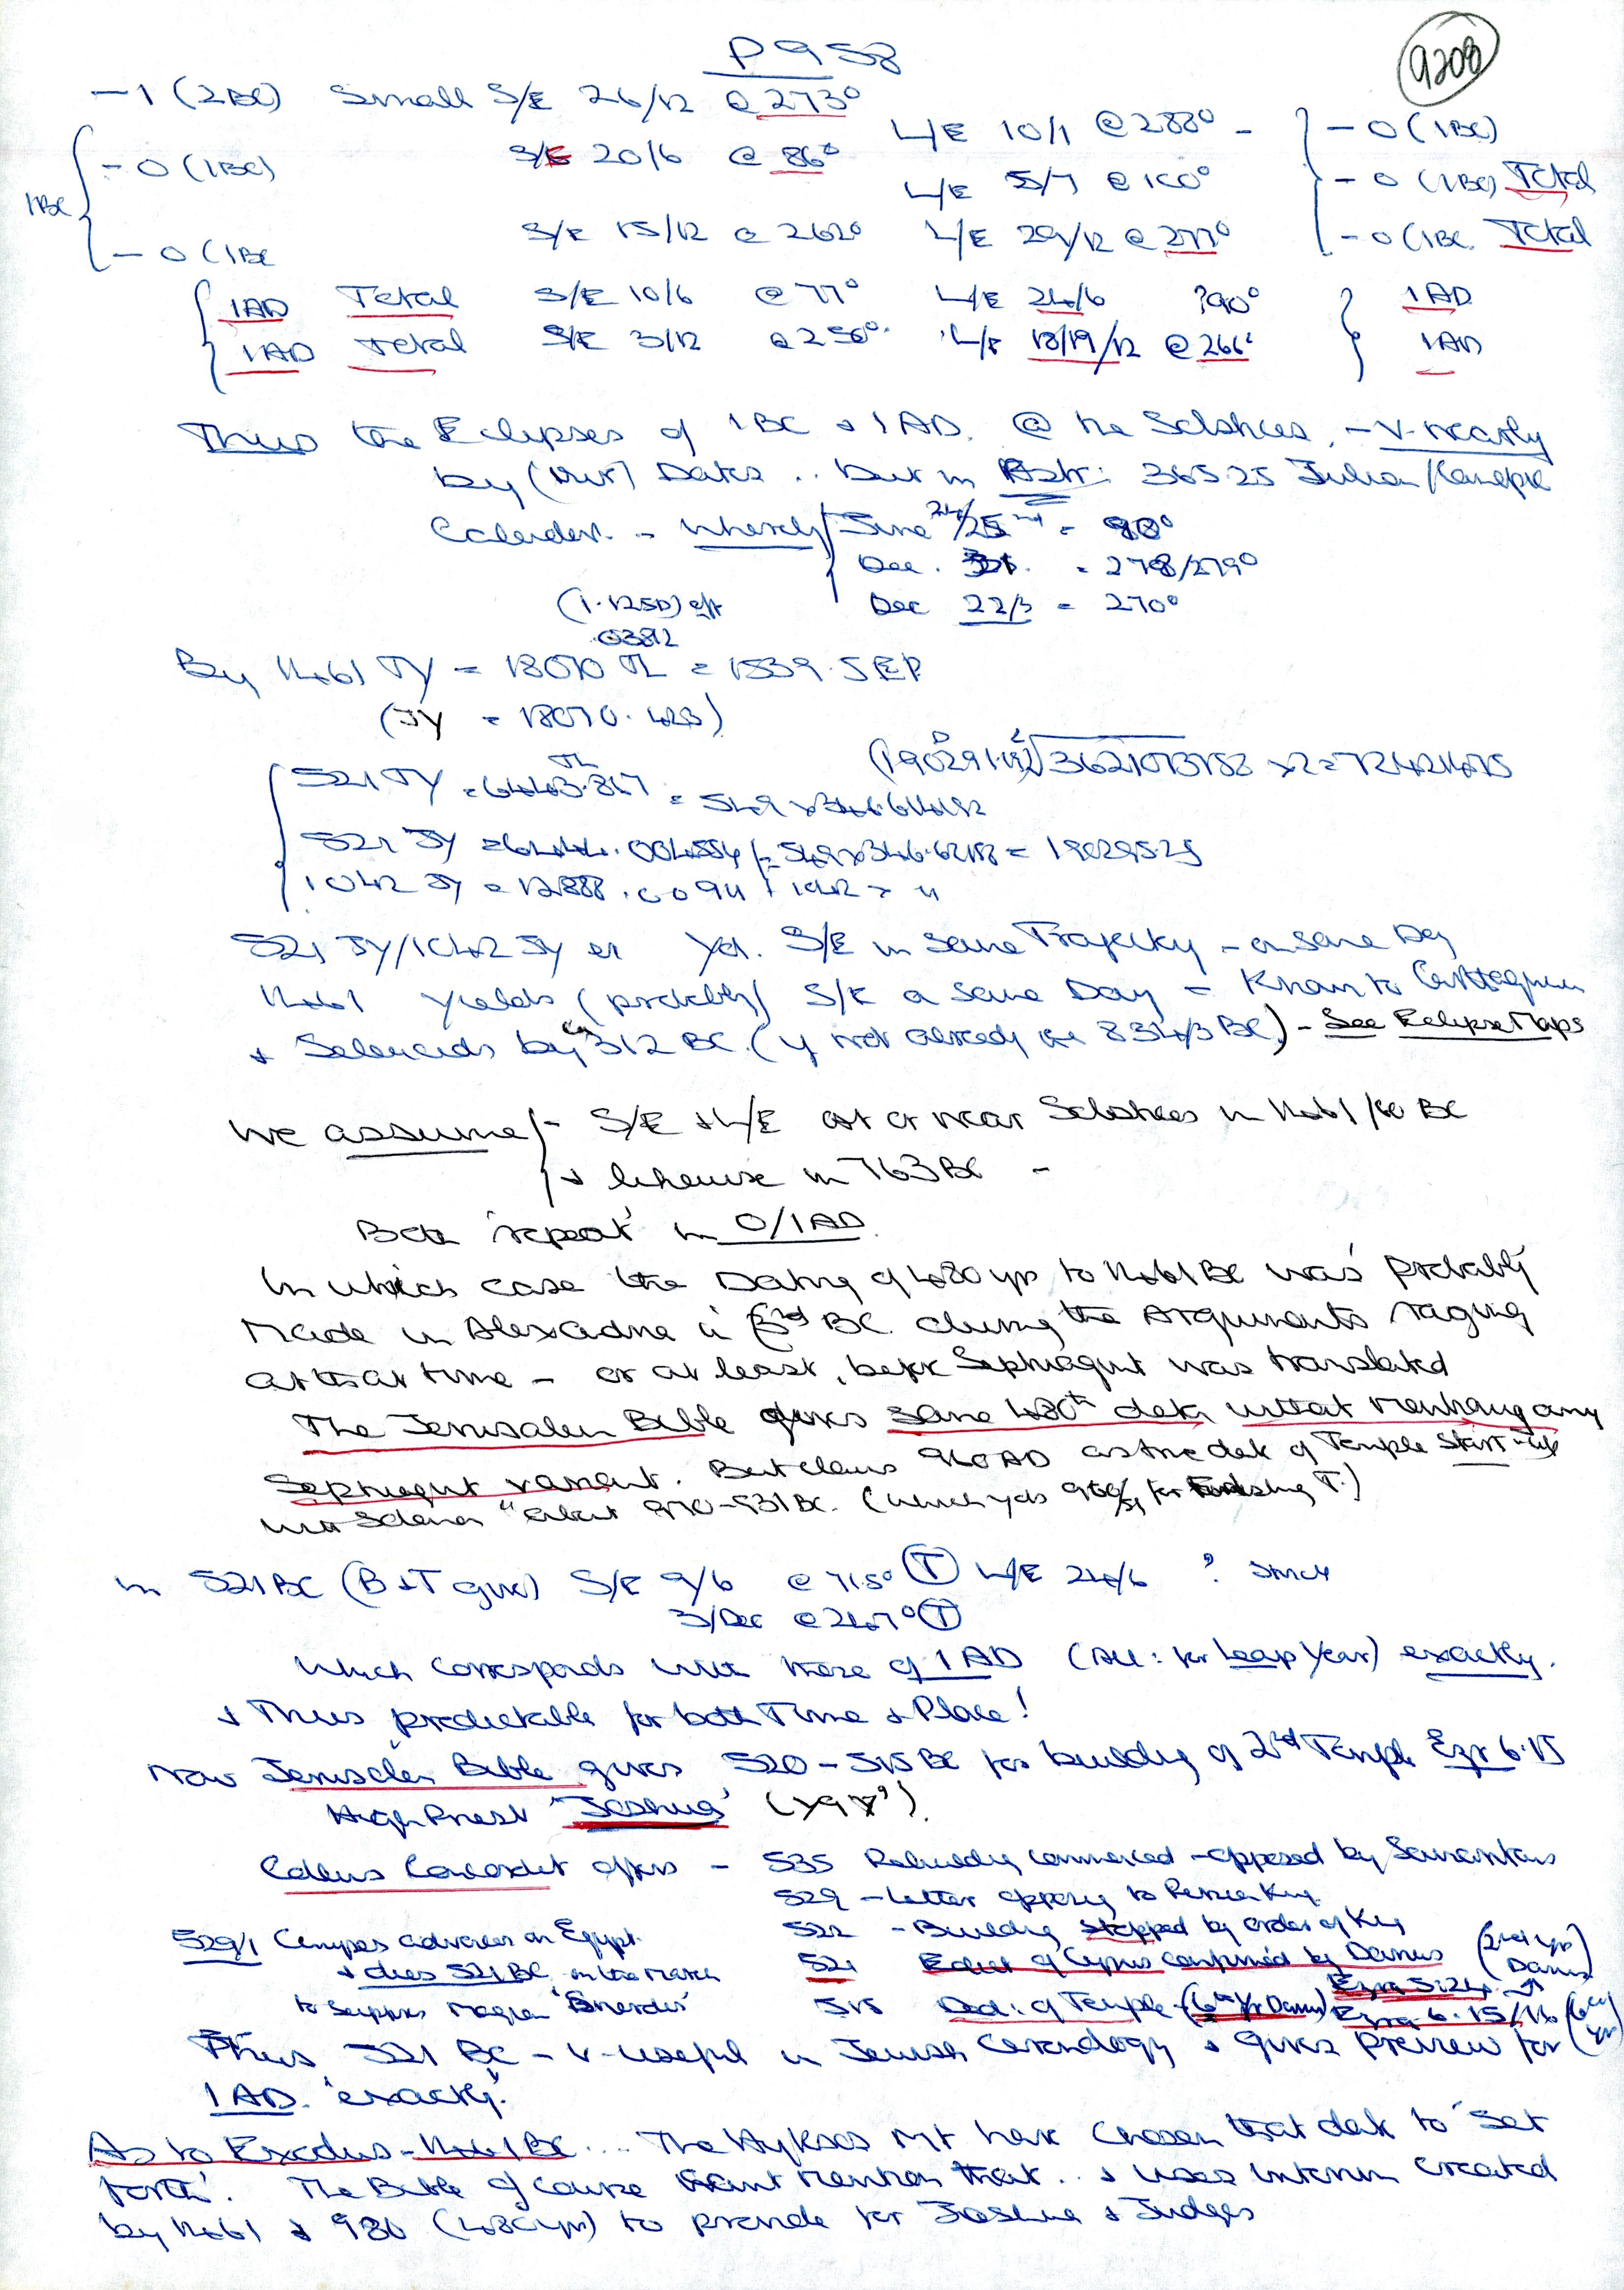 P958
9208
-1 (2BC) Small S/E 26/12 @ 273°
L/E 10/1 @ 288° - - 0 (1BC)
1BC - 0 (1BC) S/E 20/6 @ 86°
L/E 5/7 @ 100° - 0 (1BC) Total
- 0 (1BC S/E 15/12 @ 262° L/E 29/12 @ 277° - 0 (1BC. Total
1AD Total S/E 10/6 @ 77° L/E 24/6 ?90° 1AD
1AD Total S/E 3/12 @ 250°. L/E 18/19/12 @ 266° 1AD
Thus the Eclipses of 1BC & 1AD. @ the Solstices, - v. nearly
by (our) Dates .. but in Astr: 365.25 Julian/Canopic
Calendar. - whereby June 24/25 = 90°
Dec. 31. = 278/279°
Dec 22/3 = 270°
(1.125D) eff
.03812
By 1461 JY = 18070 TL = 1539.5 EP
(JY = 18070.423)
521 TY = 6443.847 TL = 549 x 346.61492
521 JY = 6444.004554 = 549 x 346.62158 = 190295.25
1042 JY = 12888.0094 1042 = "
521 JY/1042 JY Yd. S/E in same Trajectory - on same Day
1461 yields (probably) S/E @ same Day = Known to
& Seleucids by 312 BC. (if not already in 834/3 BC) - See Eclipse Maps
We assume - S/E & L/E at or near Solstices in 1461/60 BC
& likewise in 763 BC -
Both 'repeat' in 0/1AD
In which case the Dating of 480 yrs to 1461 BC was probably
made in Alexandria in 3rd BC. during the Arguments raging
at that time - or at least, before Septuagint was translated
The Jerusalem Bible gives same 480th date without mentioning any
Septuagint variant. But claims 960 AD as the date of Temple Start-up
with Solomon "about 970-931 BC. (which yds for finishing T.)
In 521 BC (B&T give) S/E 9/6 @ 71.5° (T) L/E 24/6 ?
3/Dec @ 247° (T)
Which corresponds with those of 1AD (All: for Leap Year) exactly.
& Thus predictable for both Time & Place!
Now Jerusalem Bible gives 520-515 BC for building of 2nd Temple Ezr 6.15
High Priest 'Joshua'
Collins Concordat offers - 535 Rebuilding commenced - opposed by Samaritans
529 - Letter opposing to Persian King.
529/1 Cambyses advances on Egypt. 522 - Building stopped by order of King
& dies 521 BC, on the March 521 Edict of Cyrus confirmed by Darius (2nd yr Darius)
Ezra 5:24
to suppress Magian 'Smerdis' 515 Ded: of Temple (6th Yr Darius) Ezra 6.15/16 (6th yr)
Thus 521 BC - v. useful in Jewish Chronology & gives Preview for
1AD. 'exactly'.
As to Exodus - 1461 BC .... The Hyksos mt have chosen that date to 'set
forth'. The Bible of course mention that .. & uses interim created
by 1461 & 980 (480 yrs) to provide for Joshua & Judges